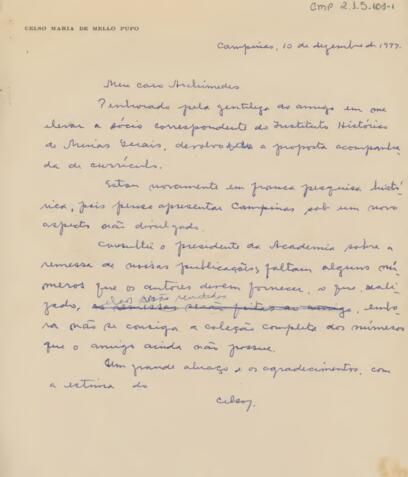 CMP 2.1.5.109-1
CELSO MARIA DE MELLO PUPO
Campinas, 10 de dezembro de 1977.
Meu caro Archimedes
Penhorado pela gentileza do amigo em me
elevar a sócio correspondente do Instituto Histórico
de Minas Gerais, devolvo a proposta acompanha-
da de currículo.
Estou novamente em franca pesquisa histó-
rica, pois penso apresentar Campinas sob um novo
aspecto não divulgado.
Consultei o presidente da Academia sobre a
remessa de nossas publicações; faltam alguns nú-
meros que os autores devem fornecer, o que, reali-
elas serão
zado, as remessas serão feitas ao amigo, embo-
ra não se consiga a coleção completa dos números
que o amigo ainda não possue.
Um grande abraço e os agradecimentos, com
a estima do
Celso.